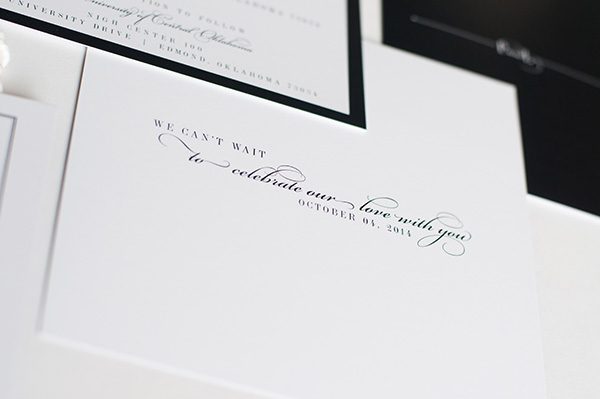 TION TO FOLLOW
University of Central Oklahoma
NIGH CENTER 100
UNIVERSITY DRIVE | EDMOND, OKLAHOMA 73034
WE CAN'T WAIT
to celebrate our love with you
OCTOBER 04, 2014